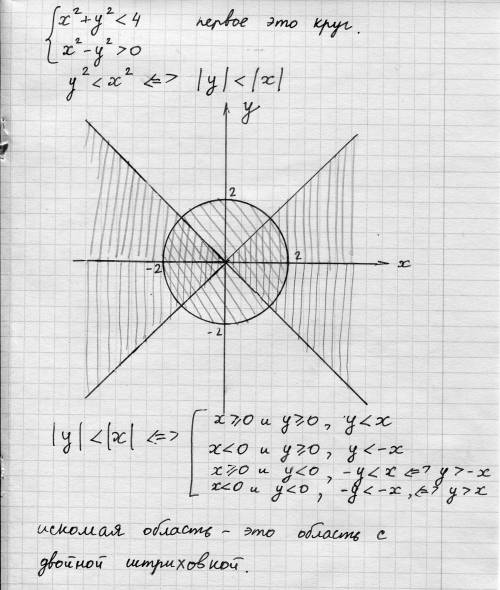 { x²+y²<4 первое это круг.
x²-y²>0
y²<x² <=> |y|<|x|
y
2
-2 2 x
-2
|y|<|x| <=> [ x≥0 и y≥0, y<x
x<0 и y≥0, y<-x
x≥0 и y<0, -y<x <=> y>-x
x<0 и y<0, -y<-x, <=> y>x
искомая область - это область с
двойной штриховной.